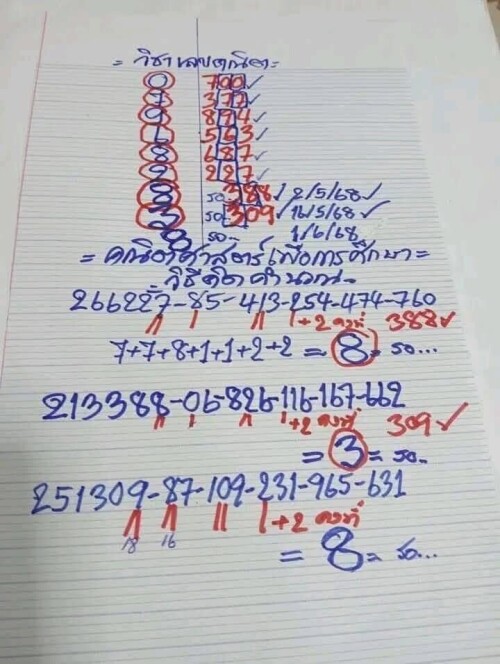 = วิชาเลขคณิต =
0 700 ✓
7 377 ✓
9 894 ✓
6 563 ✓
8 687 ✓
2 227 ✓
8 รอ 388 ✓ 2/5/68 ✓
3 รอ 309 ✓ 16/5/68 ✓
8 รอ 1/6/68
= คณิตศาสตร์เพื่อการศึกษา =
วิธีคิดคำนวณ
266227-85-413-254-474-760
+2 คงที่ 388 ✓
7+7+8+1+1+2+2 = 8 = รอ...
213388-06-826-116-167-662
+2 คงที่ 309 ✓
= 3 = รอ..
251309-87-109-231-965-631
18 16 +2 คงที่
= 8 = รอ...